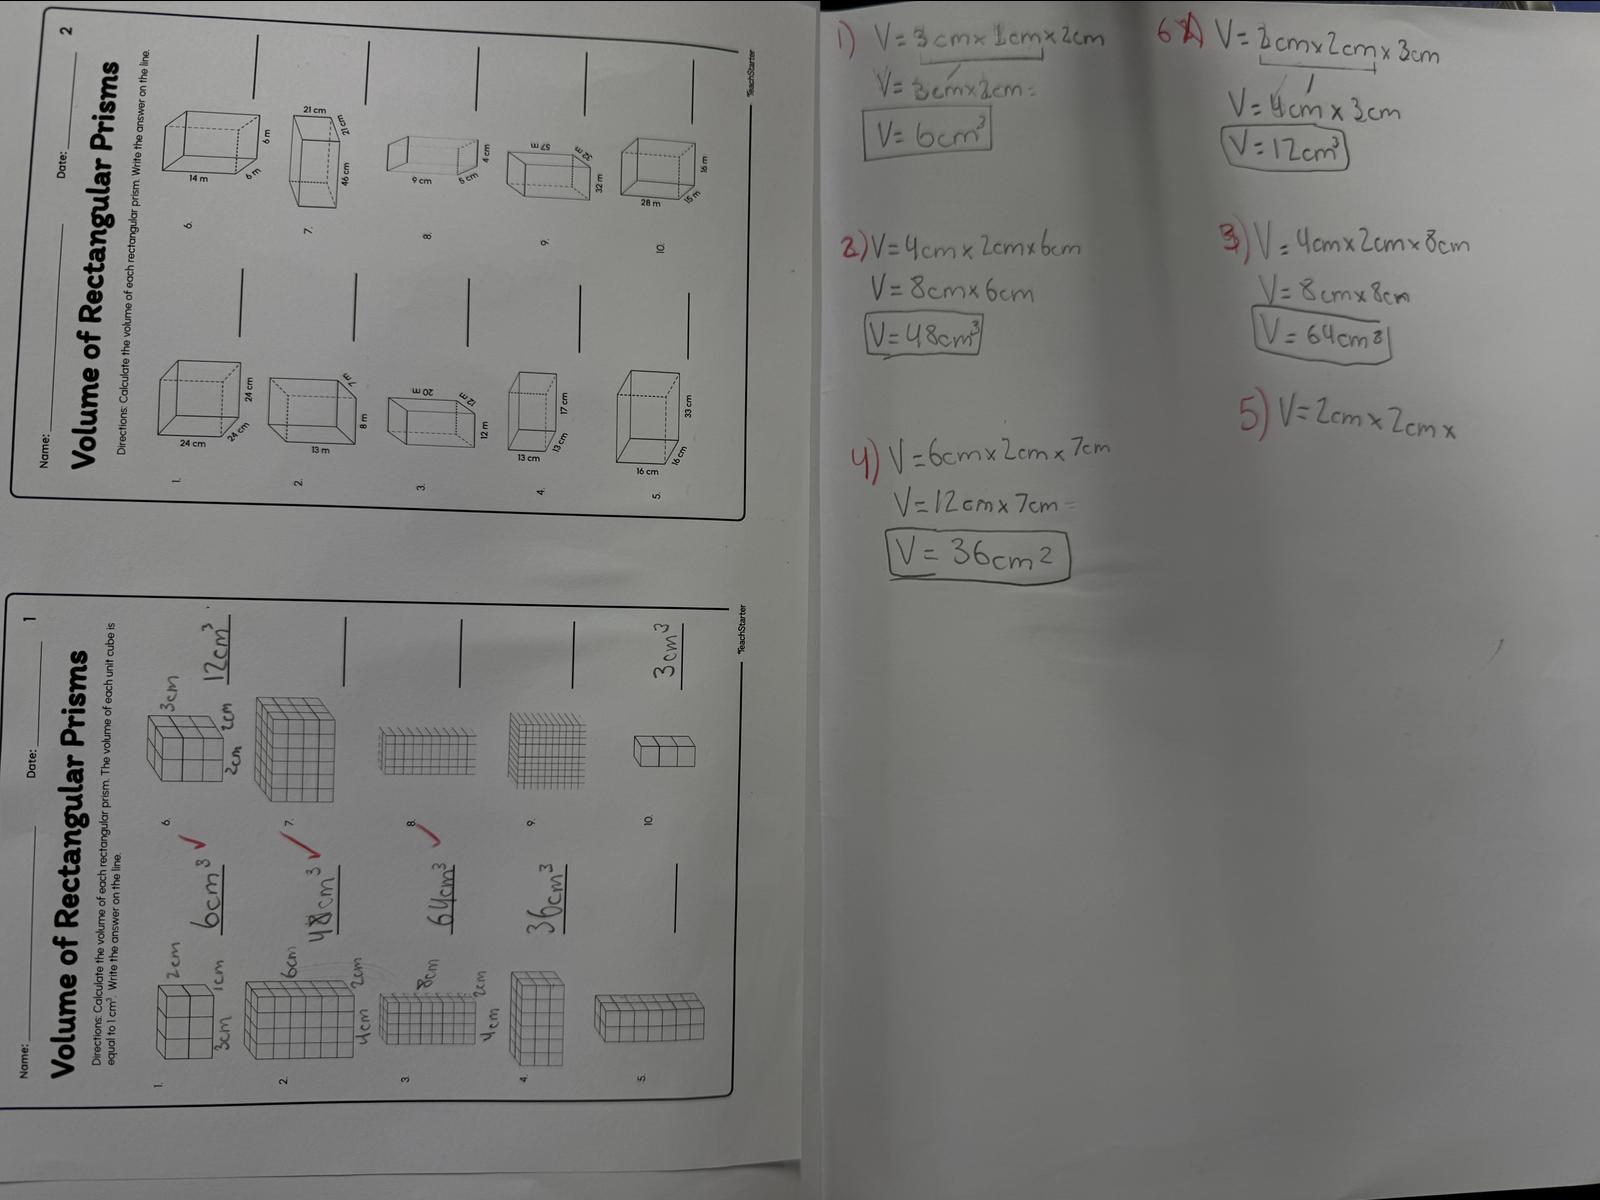 Name: Date: 1
Volume of Rectangular Prisms
Directions: Calculate the volume of each rectangular prism. The volume of each unit cube is
equal to 1 cm³. Write the answer on the line.
1.
3cm
1cm
2cm
6cm³
2.
4cm
2cm
6cm
48cm³
3.
4cm
2cm
8cm
64cm³
4.
36cm³
5.
6.
2cm
2cm
3cm
12cm³
7.
8.
9.
10.
3cm³
TeachStarter
Name: Date: 2
Volume of Rectangular Prisms
Directions: Calculate the volume of each rectangular prism. Write the answer on the line.
1.
24 cm
24 cm
24 cm
2.
13 m
8 m
7 m
3.
20 m
12 m
12 m
4.
13 cm
13 cm
17 cm
5.
16 cm
16 cm
33 cm
6.
14 m
6 m
6 m
7.
21 cm
21 cm
46 cm
8.
9 cm
5 cm
4 cm
9.
57 m
32 m
10.
28 m
15 m
16 m
TeachStarter
1) V=3cm×1cm×2cm
V=3cm×2cm=
V=6cm³
2) V=4cm×2cm×6cm
V=8cm×6cm
V=48cm³
4) V=6cm×2cm×7cm
V=12cm×7cm=
V=36cm2
6) V=2cm×2cm×3cm
V=4cm×3cm
V=12cm³
3) V=4cm×2cm×8cm
V=8cm×8cm
V=64cm3
5) V=2cm×2cm×